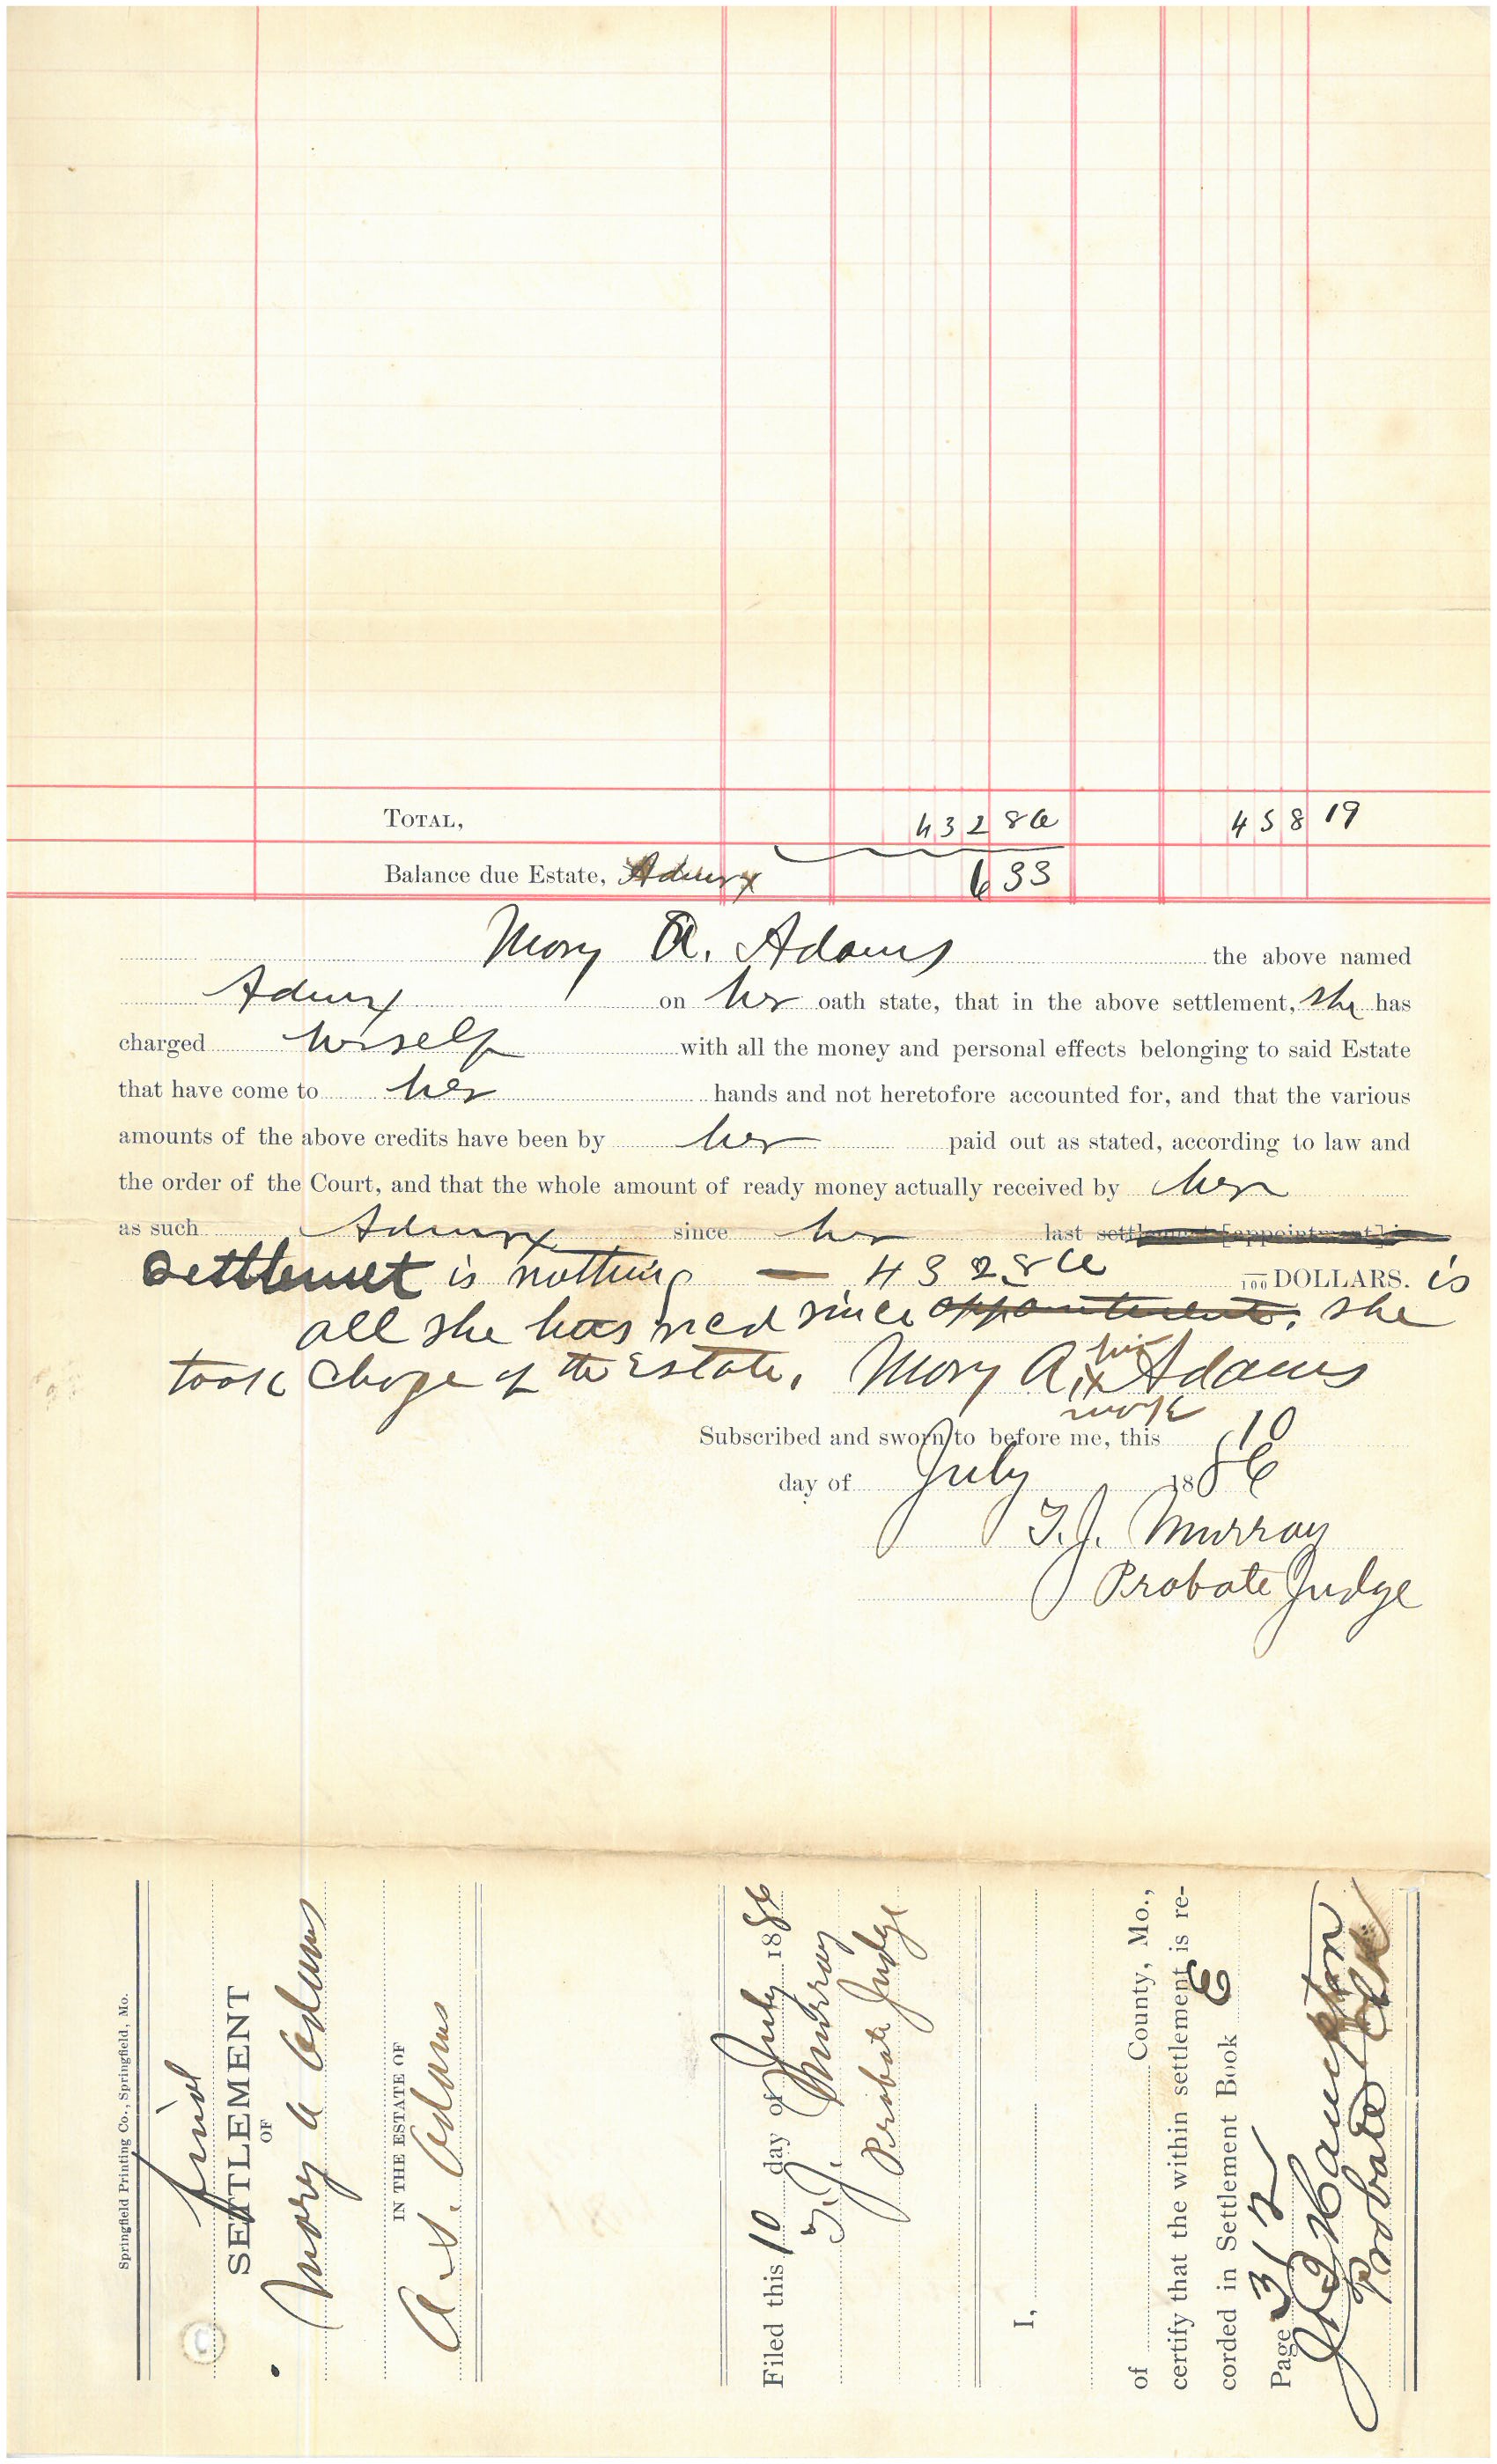 TOTAL, 432 86 458 19
Balance due Estate, Admrx 6 33
Mary A. Adams the above named
Admrx on her oath state, that in the above settlement, she has
charged herself with all the money and personal effects belonging to said Estate
that have come to her hands and not heretofore accounted for, and that the various
amounts of the above credits have been by her paid out as stated, according to law and
the order of the Court, and that the whole amount of ready money actually received by her
as such Admrx since her last settlement [appointment] is
Settlemet is nothing — 432 86 /100 DOLLARS. is
all she has recd since appointment, she
took charge of the Estate. Mary A. her x mark Adams
Subscribed and sworn to before me, this 10
day of July 1886
T. J. Murray
Probate Judge
Springfield Printing Co., Springfield, Mo.
final
SETTLEMENT
OF
Mary A Adams
IN THE ESTATE OF
A. S. Adams
Filed this 10 day of July 1886
T. J. Murray
Probate Judge
I,
of County, Mo.,
certify that the within settlement is re-
corded in Settlement Book E
Page 312
Probate